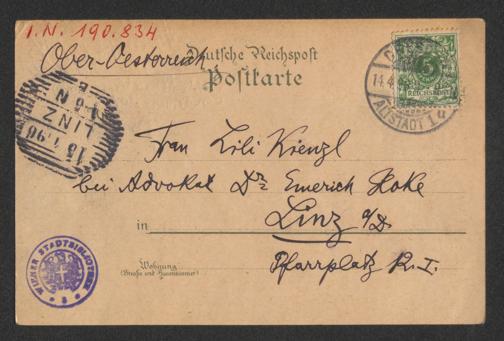 I.N. 190.834
Ober-Oesterreich
Deutsche Reichspost
Postkarte
5
REICHSPOST
14.4.
ALTSTADT 1 d
LINZ
Frau Lili Kienzl
bei Advokat Dr. Emerich
in Linz a/D.
Pfarrplatz
Wohnung
(Straße und Hausnummer)
WIENER STADTBIBLIOTHEK